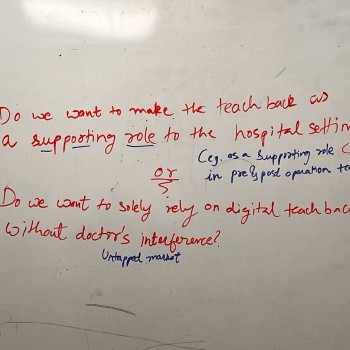 Do we want to make the teach back as
a supporting role to the hospital settin
(eg. as a supporting role
in pre & post operation
or
Do we want to solely rely on digital teach bac
without doctor's interference?
Untapped market